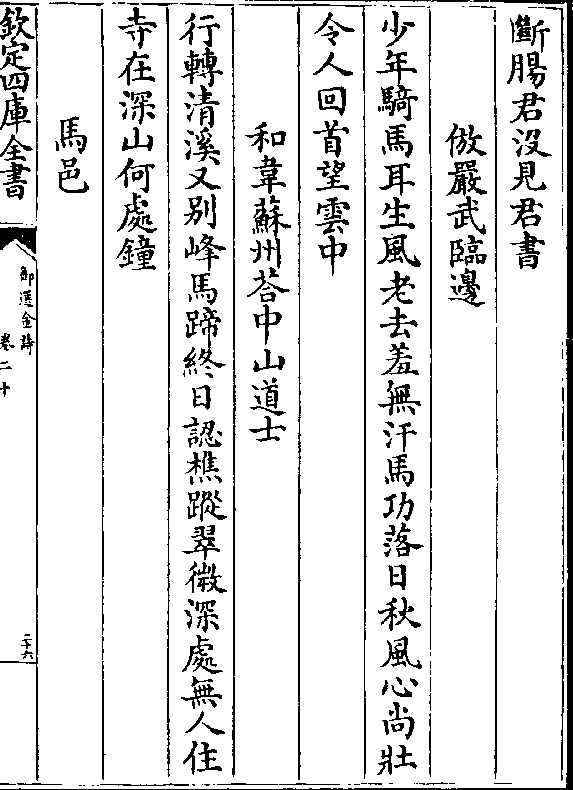 斷腸君没見君書
倣嚴武臨邊
少年騎馬耳生風老去羞無汗馬功落日秋風心尚壯
令人回首望雲中
和韋蘇州荅中山道士
行轉清溪又别峰馬蹄終日認樵蹤翠微深處無人住
寺在深山何處鐘
馬邑
欽定四庫全書
御選金詩
卷二十
二十六